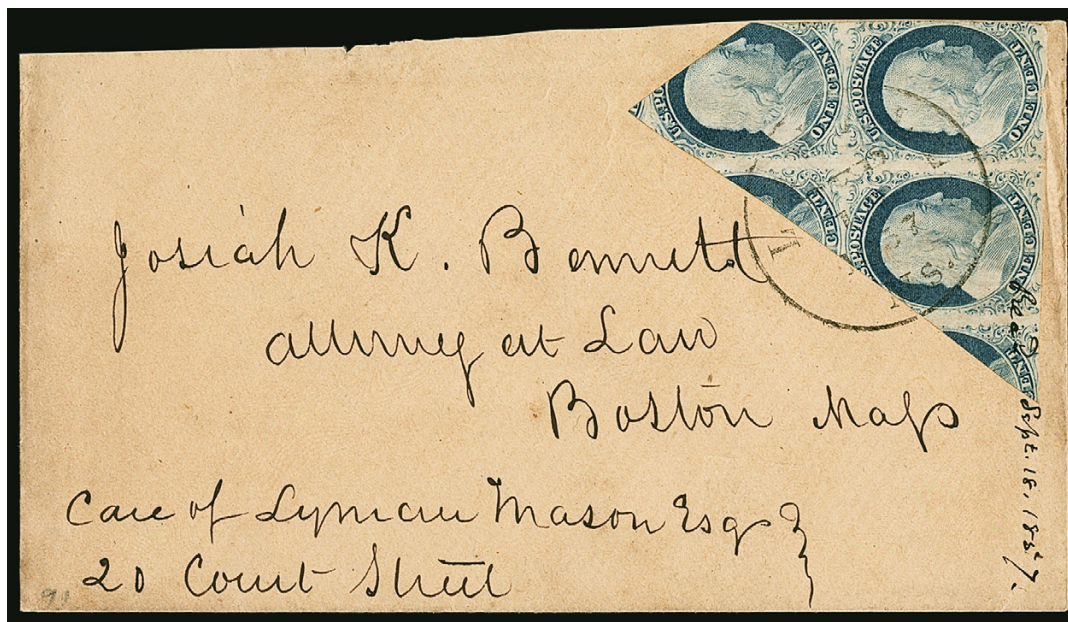 U.S. POSTAGE
ONE CENT
U.S. POSTAGE
ONE CENT
ONE CENT
POSTAGE
ONE CENT
Josiah K. Bennett
Attorney at Law
Boston Mass
Care of Lyman Mason Esq
20 Court Street
Recd Sept. 18, 1857.